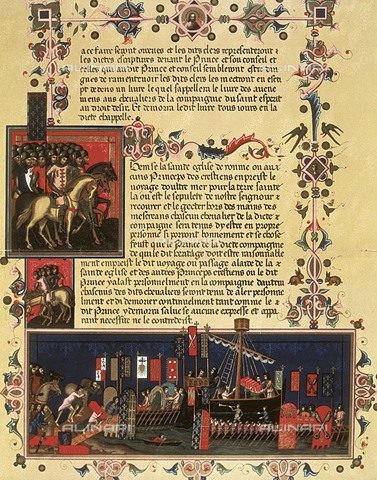 ace faire seront esleues et les dits clers representeront
les dictes escriptures deuant le Prince et son conseil et
celles qui au dit Prince et conseil sembleront estre din
gues de ramenteuoir les dits clers les mectront en esp
pt dedens un liure le quel sappellera le liure des auene
mens aus cheualiers de la compaignie du saint esperit
au droit desir. Et demorra le dit liure tous iours en la
dicte chappelle.
Item se la sainte eglise de romme ou au
uns Princeps crestiens empreist le
uoyage doultre mer pour la terre sainte
la ou est le sepulcre de nostre seigneur
recourer et le gecter hors des mains des
mescreans chascun cheualier de la dicte
compaignie sera tenus dy estre en propre
personne si pourront bonnement et se chose
feust que le Prince de la dicte compaignie
de qui le dit heritage doit estre raisonnable
ment empreist le dit uoyage ou passage alaide de la
sainte eglise et des autres Princeps crestiens ou le dit
Prince y alast personnelment en la compaignie dautrui
chascuns des dits cheualiers seront tenus de aler personne
lment et di demorer continuelment tant comme le
dit Prince y demorra salue se aucune expresse et appa
rant necessite ne le contredeist.
ALINARI
ALINARI